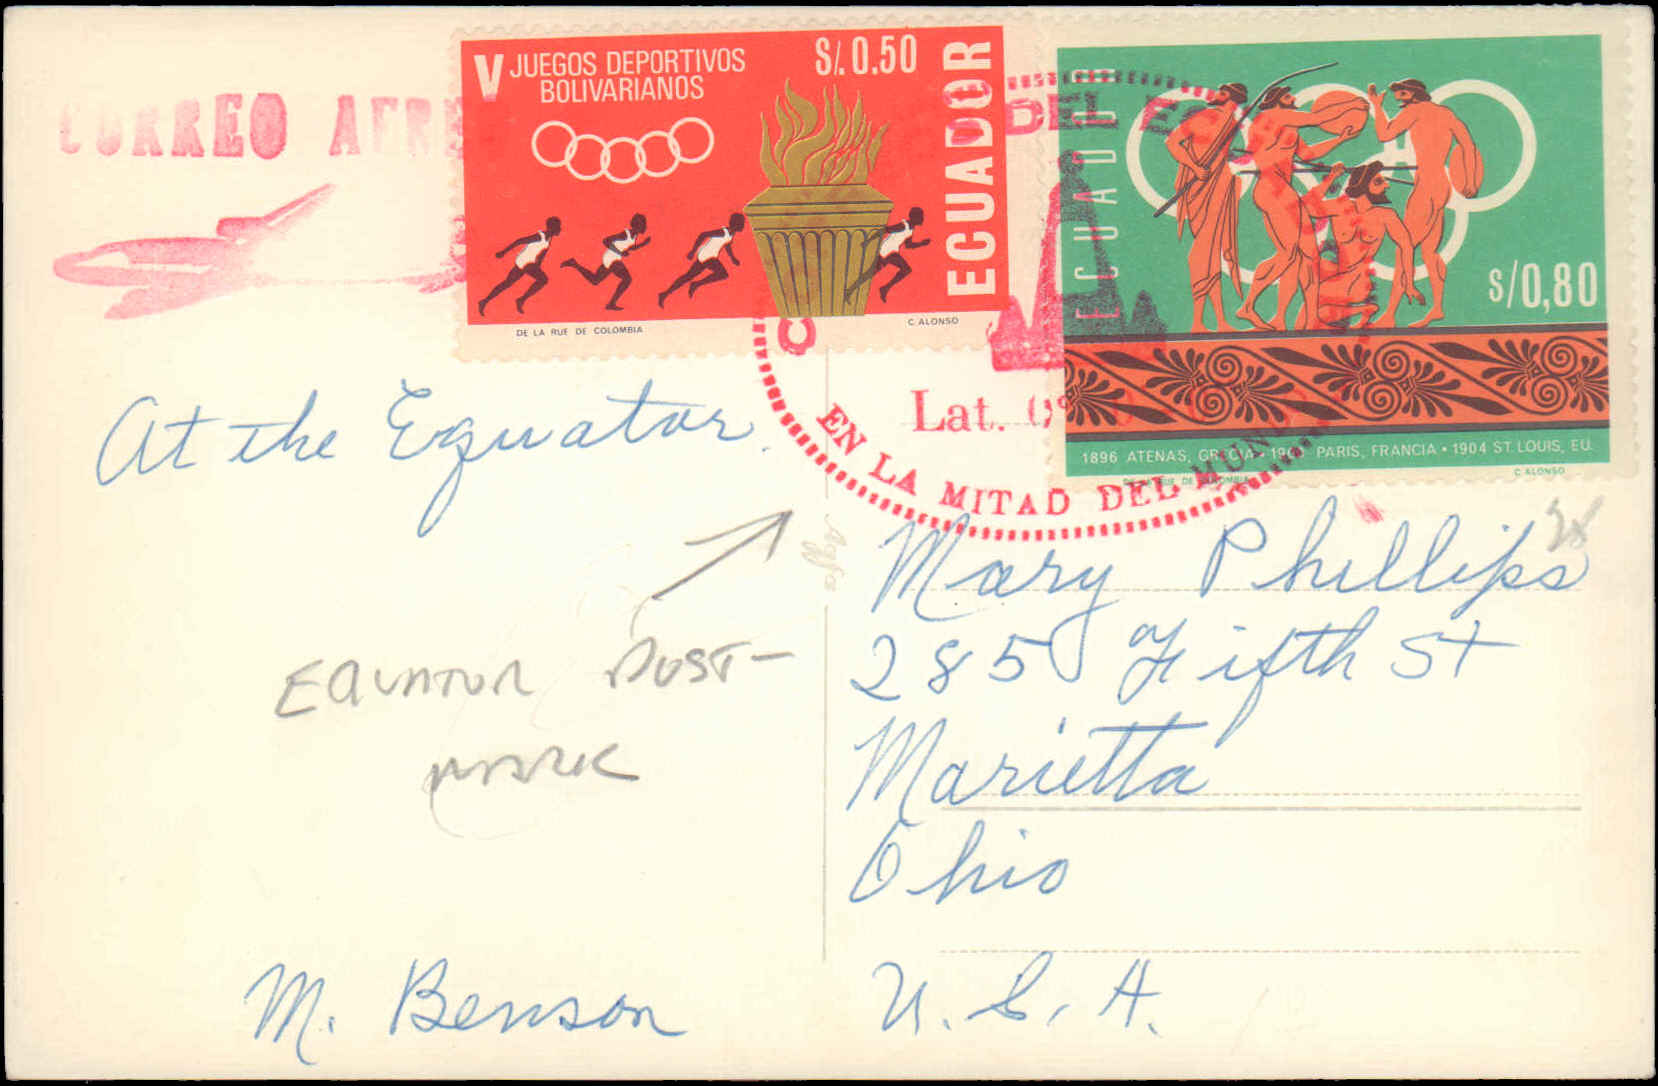 CORREO AERE
V JUEGOS DEPORTIVOS
BOLIVARIANOS
S/. 0.50
ECUADOR
DE LA RUE DE COLOMBIA
C. ALONSO
ECUADOR
S/0,80
1896 ATENAS, GRECIA • PARIS, FRANCIA • 1904 ST. LOUIS, EU.
DE LA RUE DE COLOMBIA
C. ALONSO
DEL
Lat. 0°
EN LA MITAD DEL MUND
At the Equator.
Agfa
EQUATOR POST-
MARK
M. Benson
28
Mary Phillips
285 Fifth St
Marietta
Ohio
U.S.A.